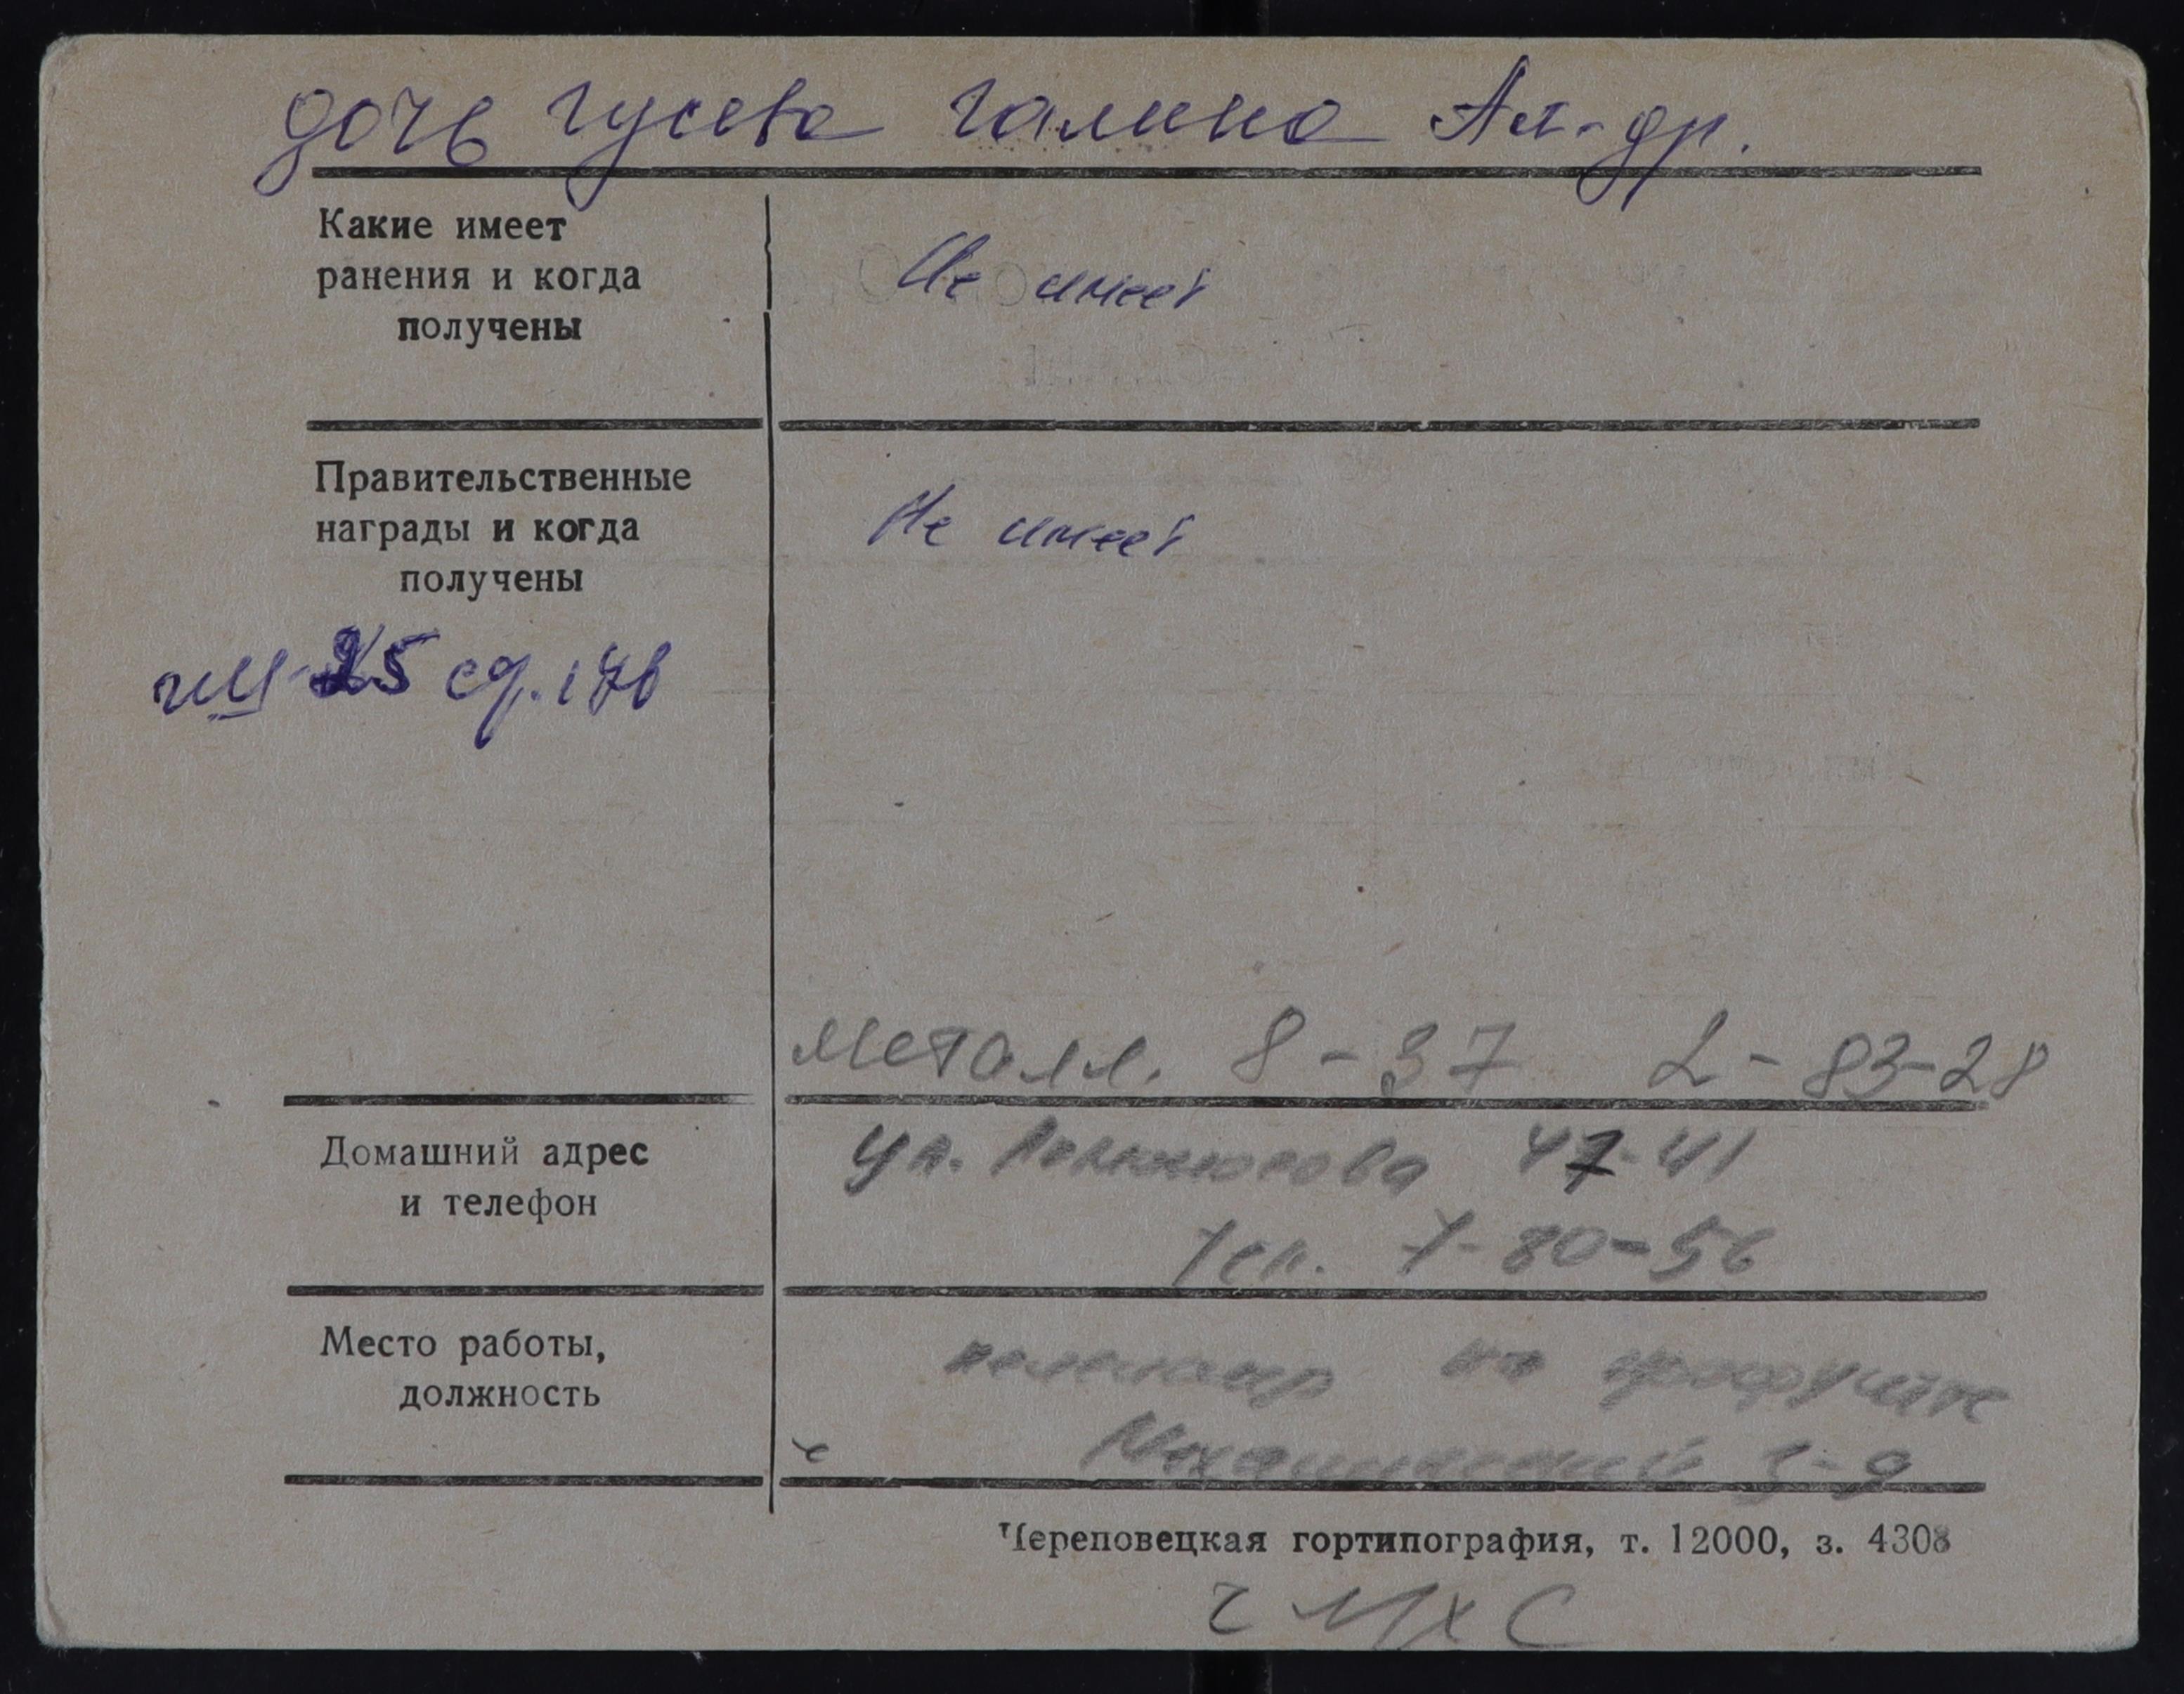 дочь Гусева Галина Ал-др.
Какие имеет
ранения и когда
получены
Не имеет
Правительственные
награды и когда
получены
Не имеет
25 сд.
Металл. 8-37 2-83-28
Домашний адрес
и телефон
ул. 47-41
тел. 7-80-56
Место работы,
должность
Механический з-д
Череповецкая гортипография, т. 12000, з. 4308
ЧМХС